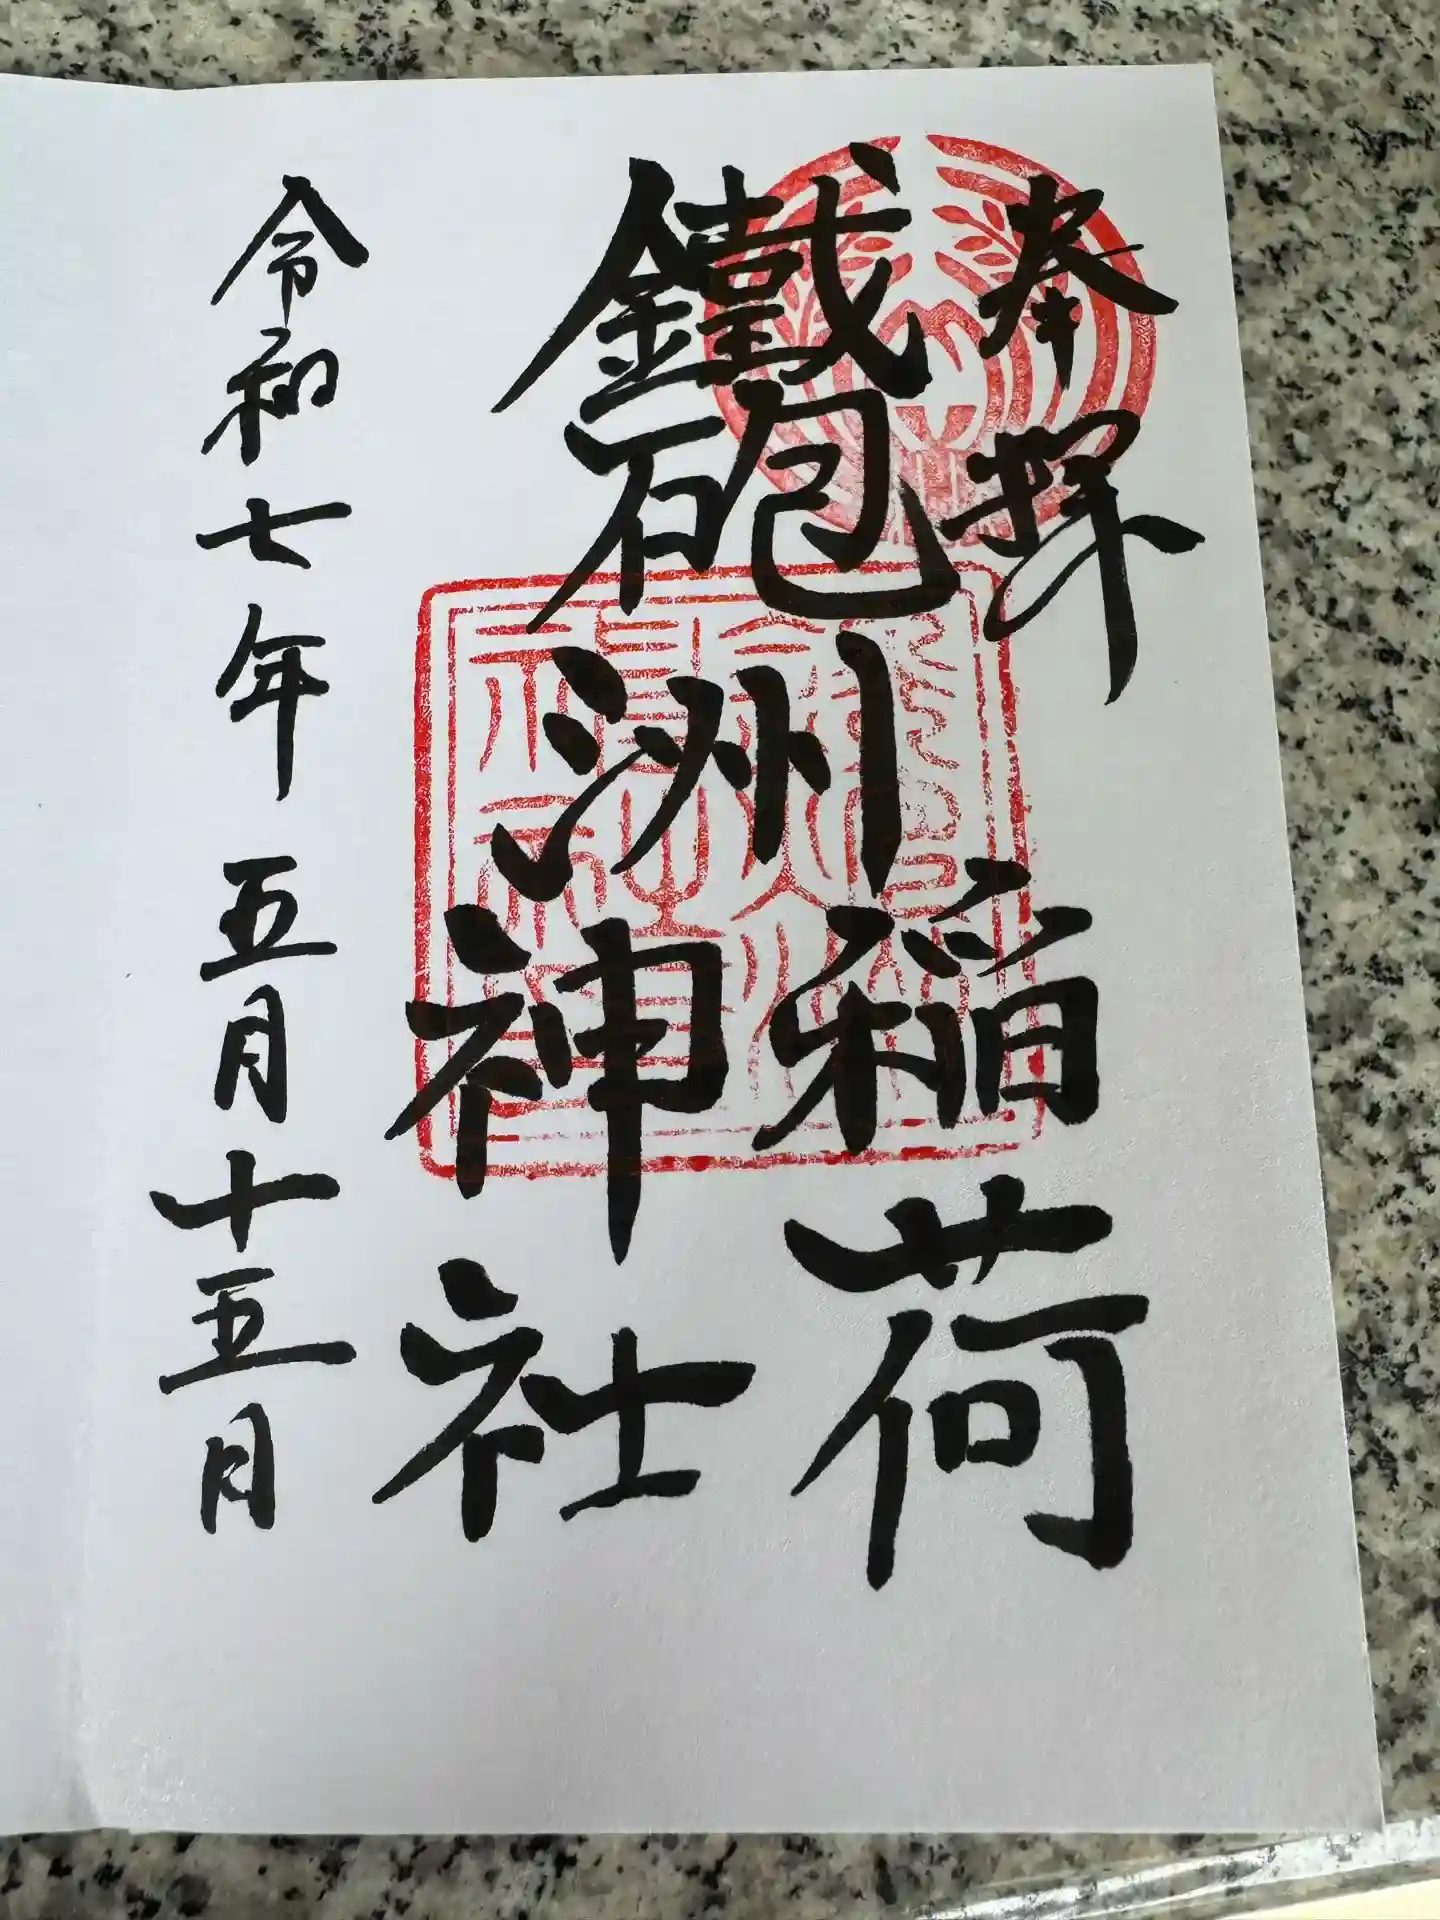 奉拝
鐵砲洲
稲荷
神社
令和七年五月十五月